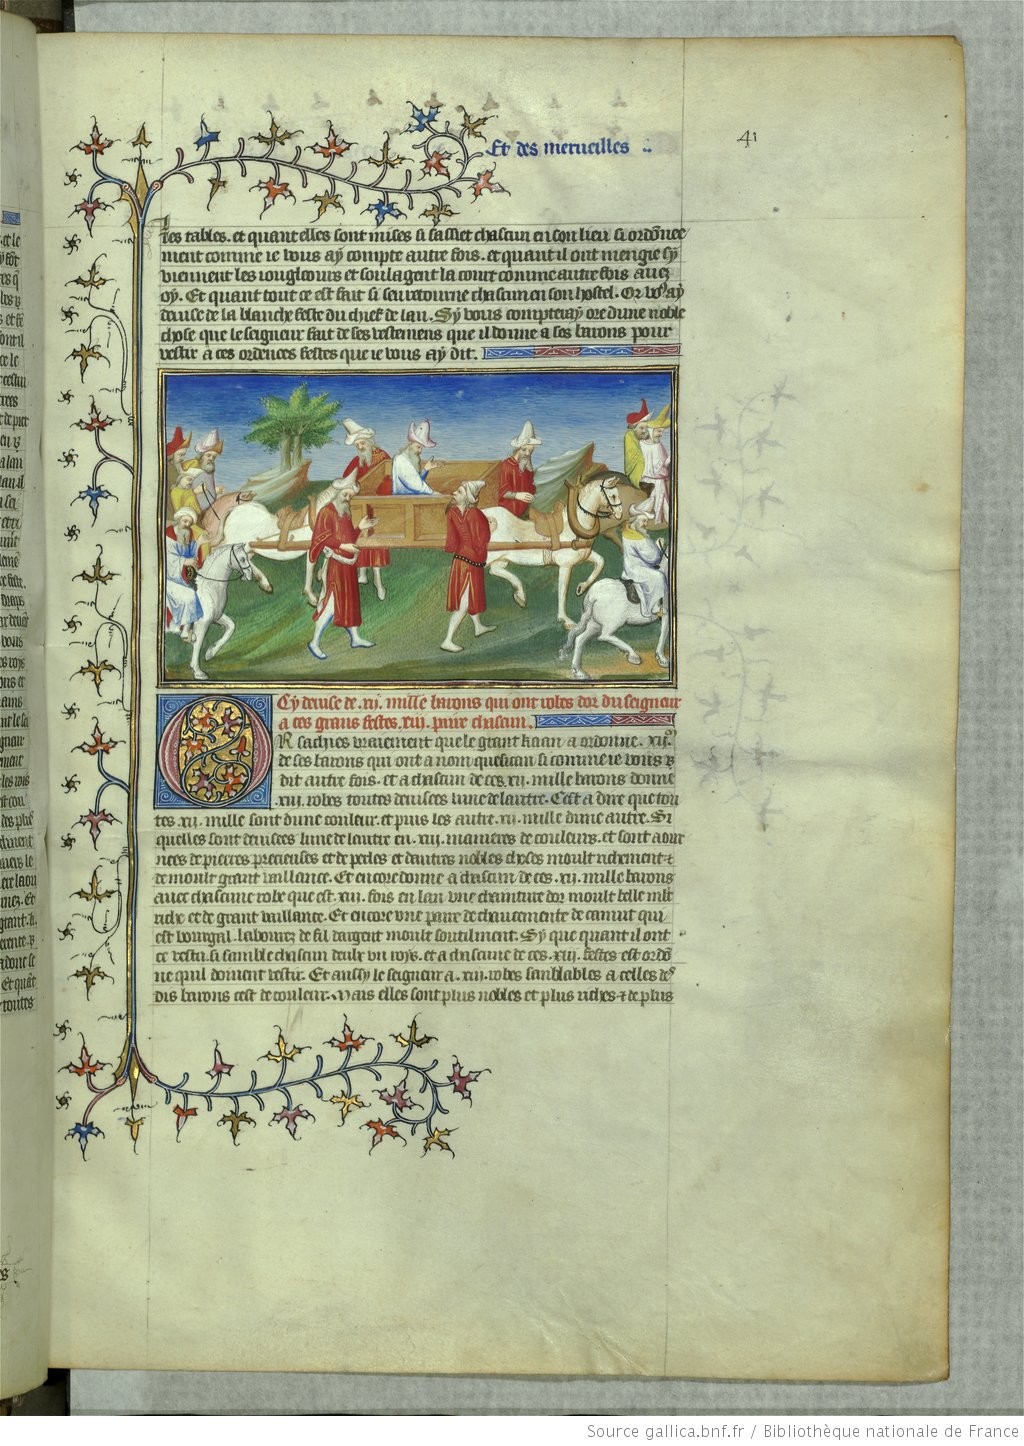 Et des merueilles
41
les tables. et quant elles sont mises si sassiet chascun en son lieu si ordõnee
ment comme ie vous ay compte autre fois. et quant il ont mengie sy
viennent les iougleours et soulagent la court comme autre fois auez
oy. Et quant tout ce est fait si sen retourne chascun en son hostel. Or vo9 ay
deuise de la blanche feste du chief de lan. Sy vous compteray ore dune noble
chose que le seigneur fait de ses vestemens que il donne a ses barons pour
vestir a ces ordences festes que ie vous ay dit.
Cy deuise de .xij. mille barons qui ont robes dor du seigneur
a ces grans festes .xiij. paire chascun.
OR sachies vraiement que le grant kaan a ordonne .xij.m
de ses barons qui ont a nom quesitan si comme ie vous ay
dit autre fois. et a chascun de ces .xij. mille barons donne
.xiij. robes toutes deuisees lune de lautre. Cest a dire que tou
tes .xij. mille sont dune couleur. et puis les autre .xij. mille dune autre. Si
quelles sont deuisees lune de lautre en .xiij. manieres de couleurs. et sont aour
nees de pierres precieuses et de perles et dautres nobles choses moult richement et
de moult grant vaillance. Et encore donne a chascun de ces .xij. mille barons
auec chascune robe que est .xiij. fois en lan vne chainture dor moult belle mlt
riche et de grant vaillance. Et encore vne paire de chaucemente de camut qui
est bourgal. labourez de fil dargent moult soutilment. Sy que quant il ont
ce vestu. si samble chascun deulx vn roys. et a chascune de ces .xiij. festes est ordõ
ne quil doiuent vestir. Et aussy le seigneur a .xiij. robes samblables a celles des
dis barons cest de couleur. Mais elles sont plus nobles et plus riches et de plus
Source gallica.bnf.fr / Bibliothèque nationale de France